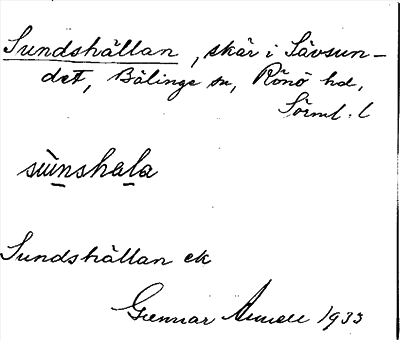 Sundshällan, skär i Sävsun-
det, Bälinge sn, Rönö hd,
Sörml. l
sùnshala
Sundshällan ek
Gunnar 1933